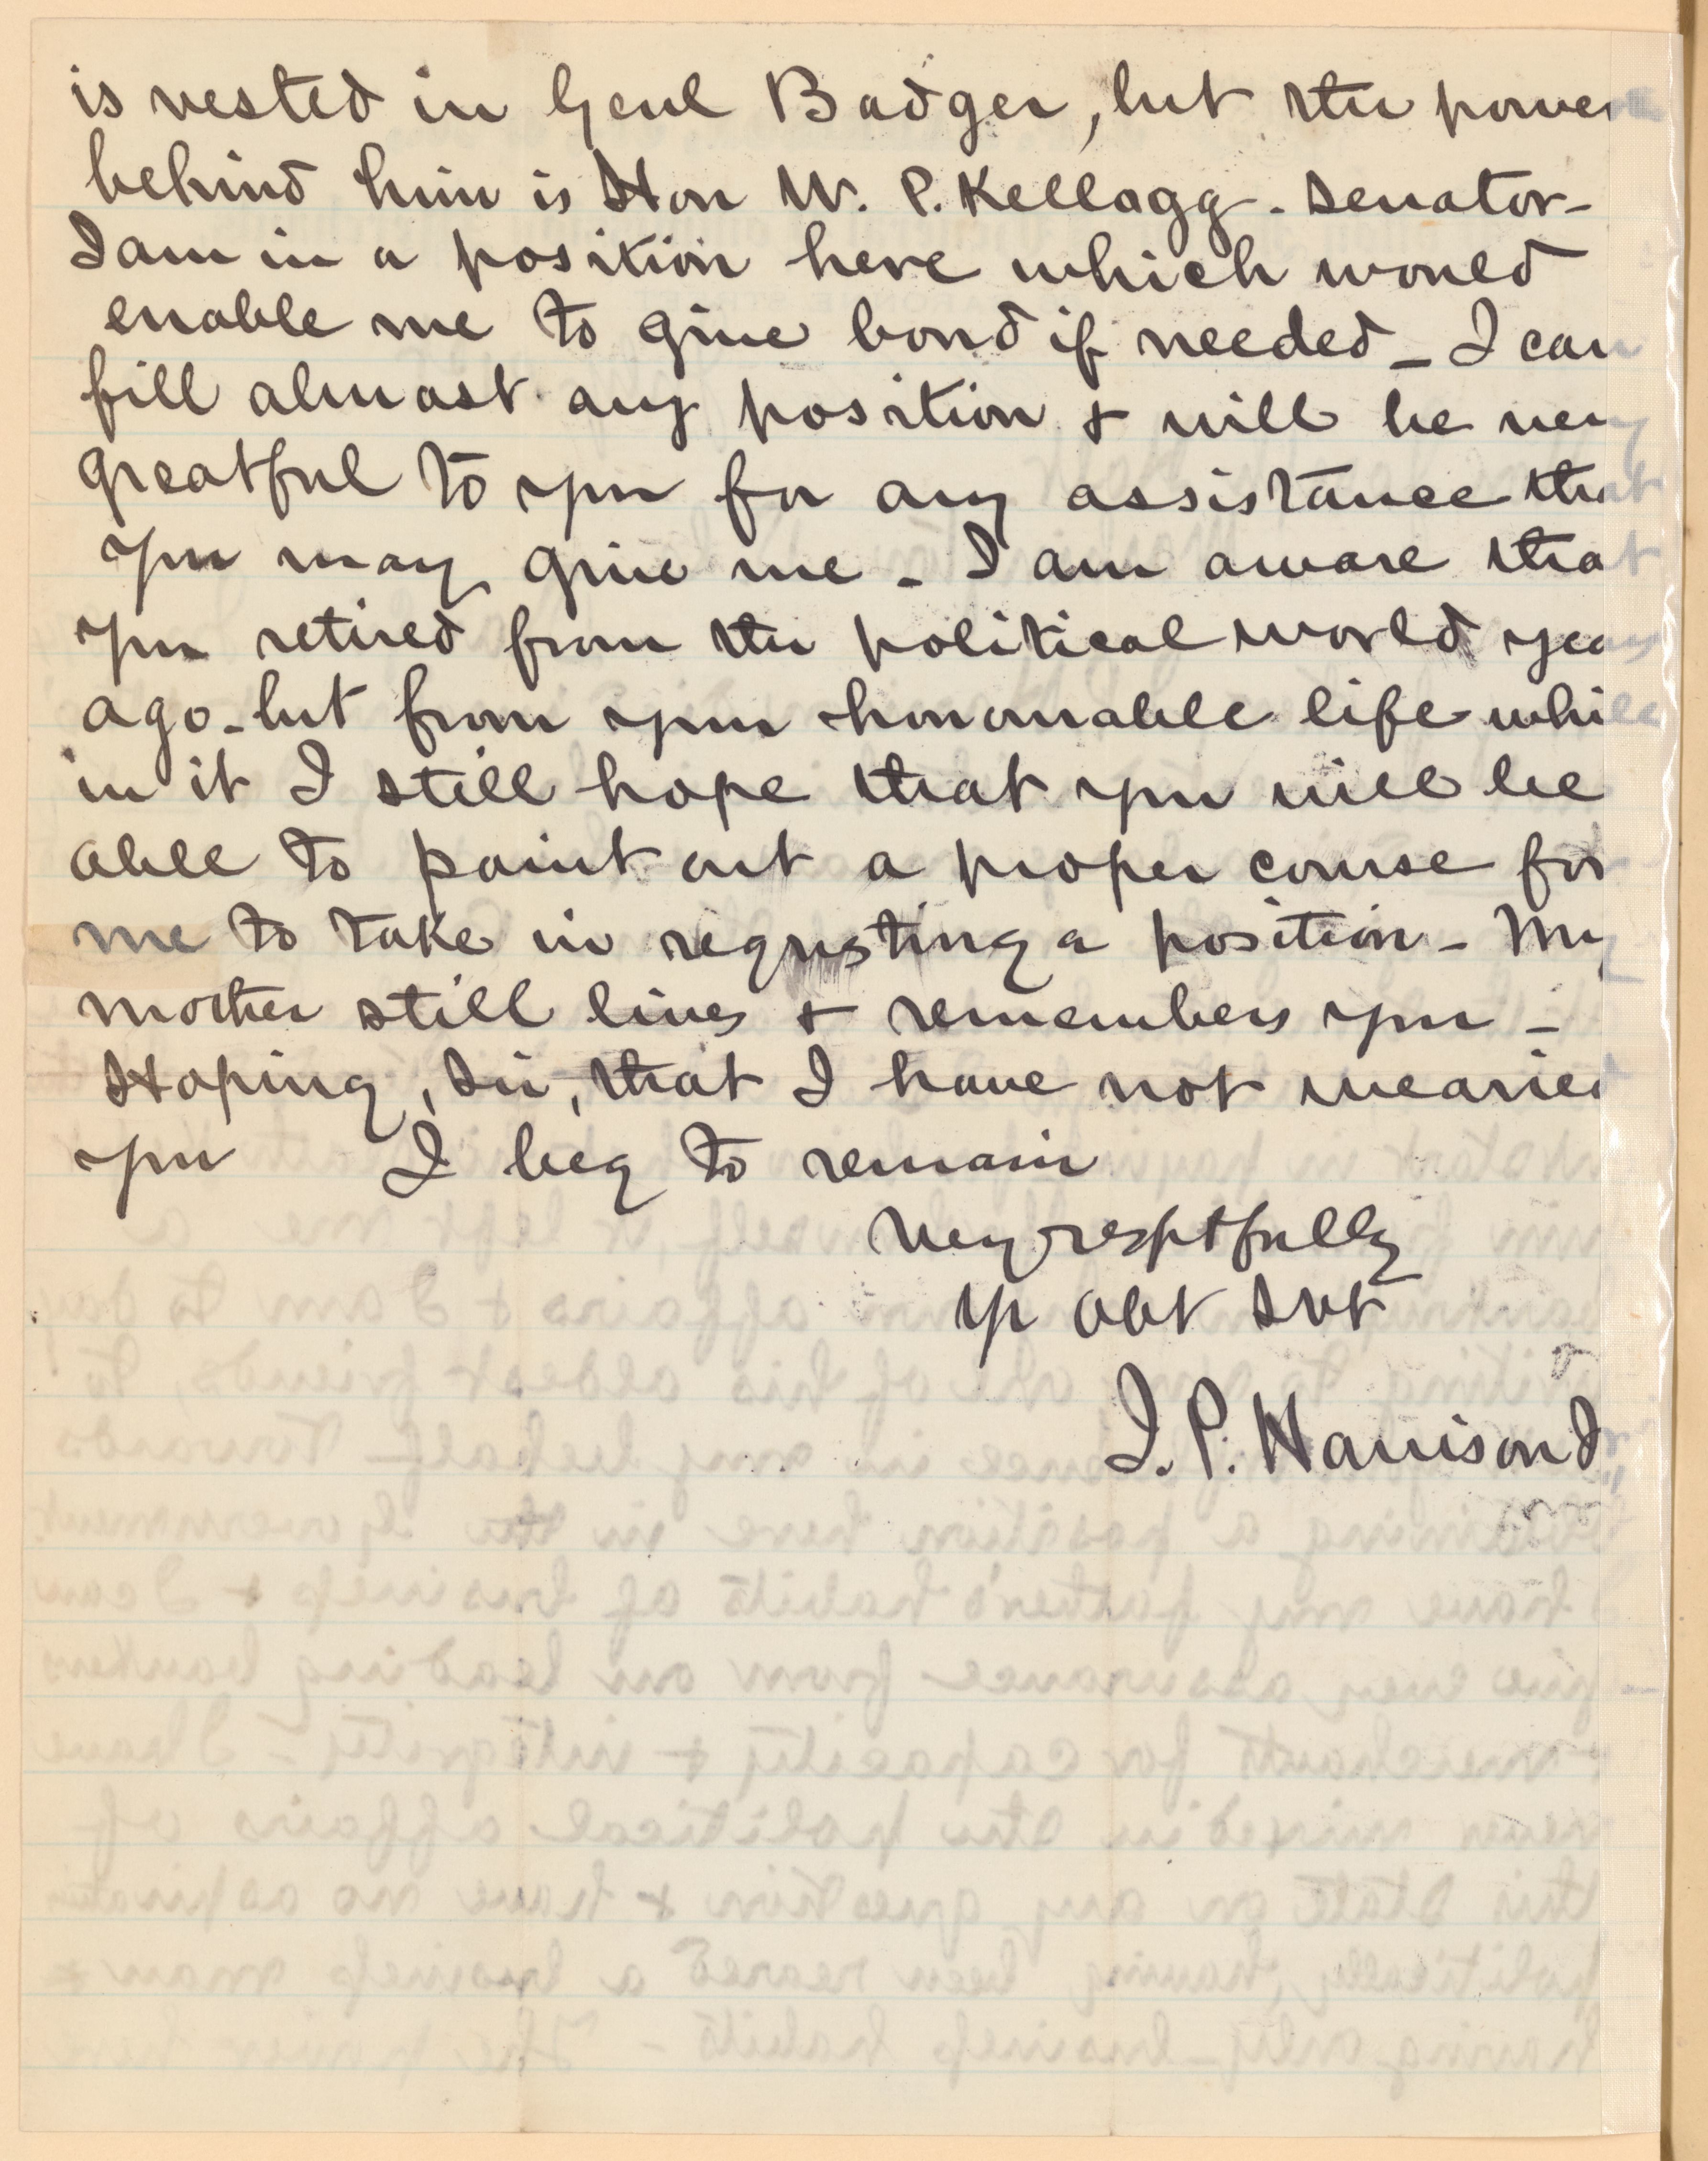 is vested in Genl Badger, but the power
behind him is Hon W. P. Kellagg - Senator -
I am in a position here which would
enable me to give bond if needed - I can
fill almost any position & will be very
greatful to you for any assistance that
you may give me - I am aware that
you retired from the political world years
ago - but from your honourable life while
in it I still hope that you will be
able to point out a proper course for
me to take in requsting a position - My
mother still lives & remembers you -
Hoping, Sir, that I have not wearied
you I beg to remain
Very resptfully
Yr Obt Svt
J. P. Harrison Jr